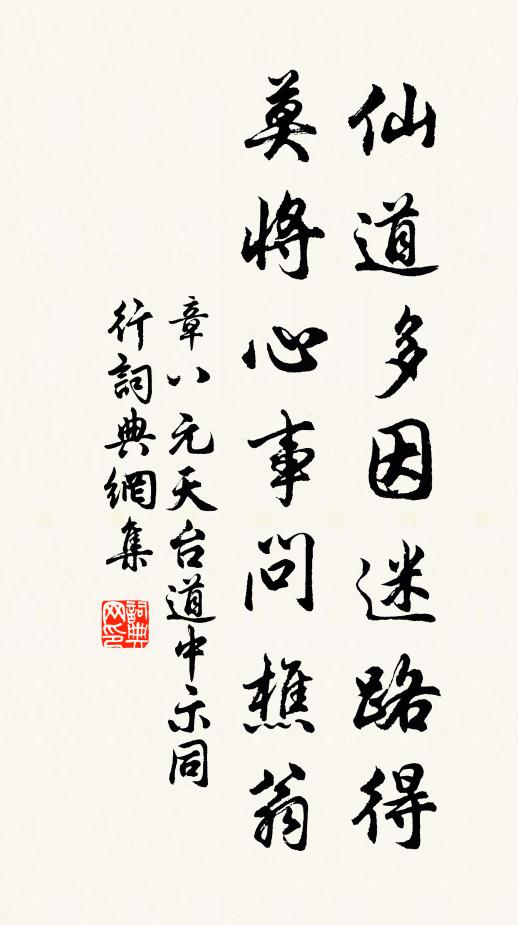 仙道多因迷路得
莫將心事問樵翁
章八元天台道中示同
行詞典網集
詞典網印